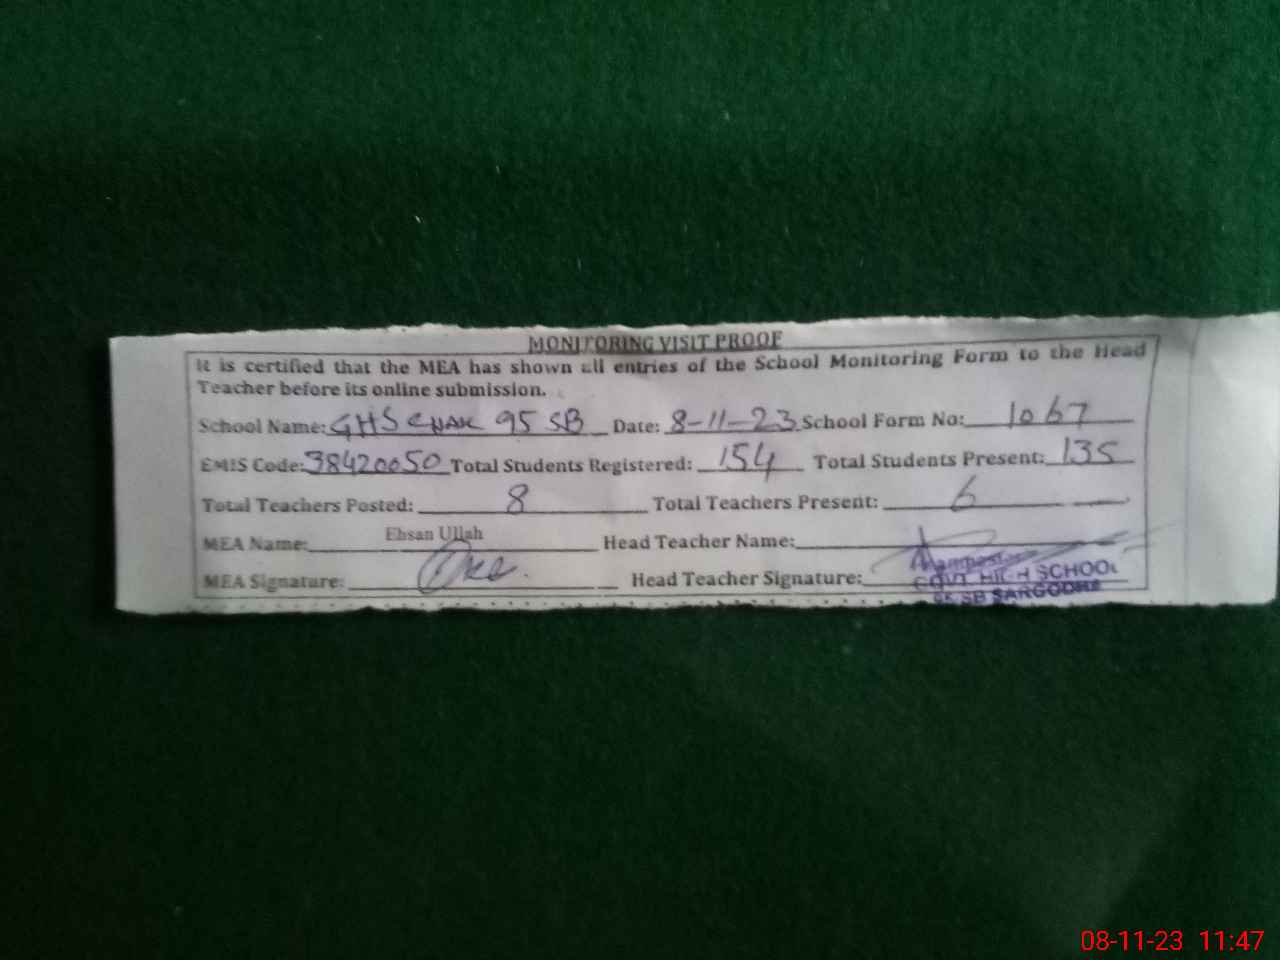 MONITORING VISIT PROOF
It is certified that the MEA has shown all entries of the School Monitoring Form to the Head
Teacher before its online submission.
School Name: GHS CHAK 95 SB Date: 8-11-23 School Form No: 1067
EMIS Code: 38420050 Total Students Registered: 154 Total Students Present: 135
Total Teachers Posted: 8 Total Teachers Present: 6
MEA Name: Ehsan Ullah Head Teacher Name:
MEA Signature: Head Teacher Signature:
GOVT HIGH SCHOOL
95 SB SARGODHA
08-11-23 11:47